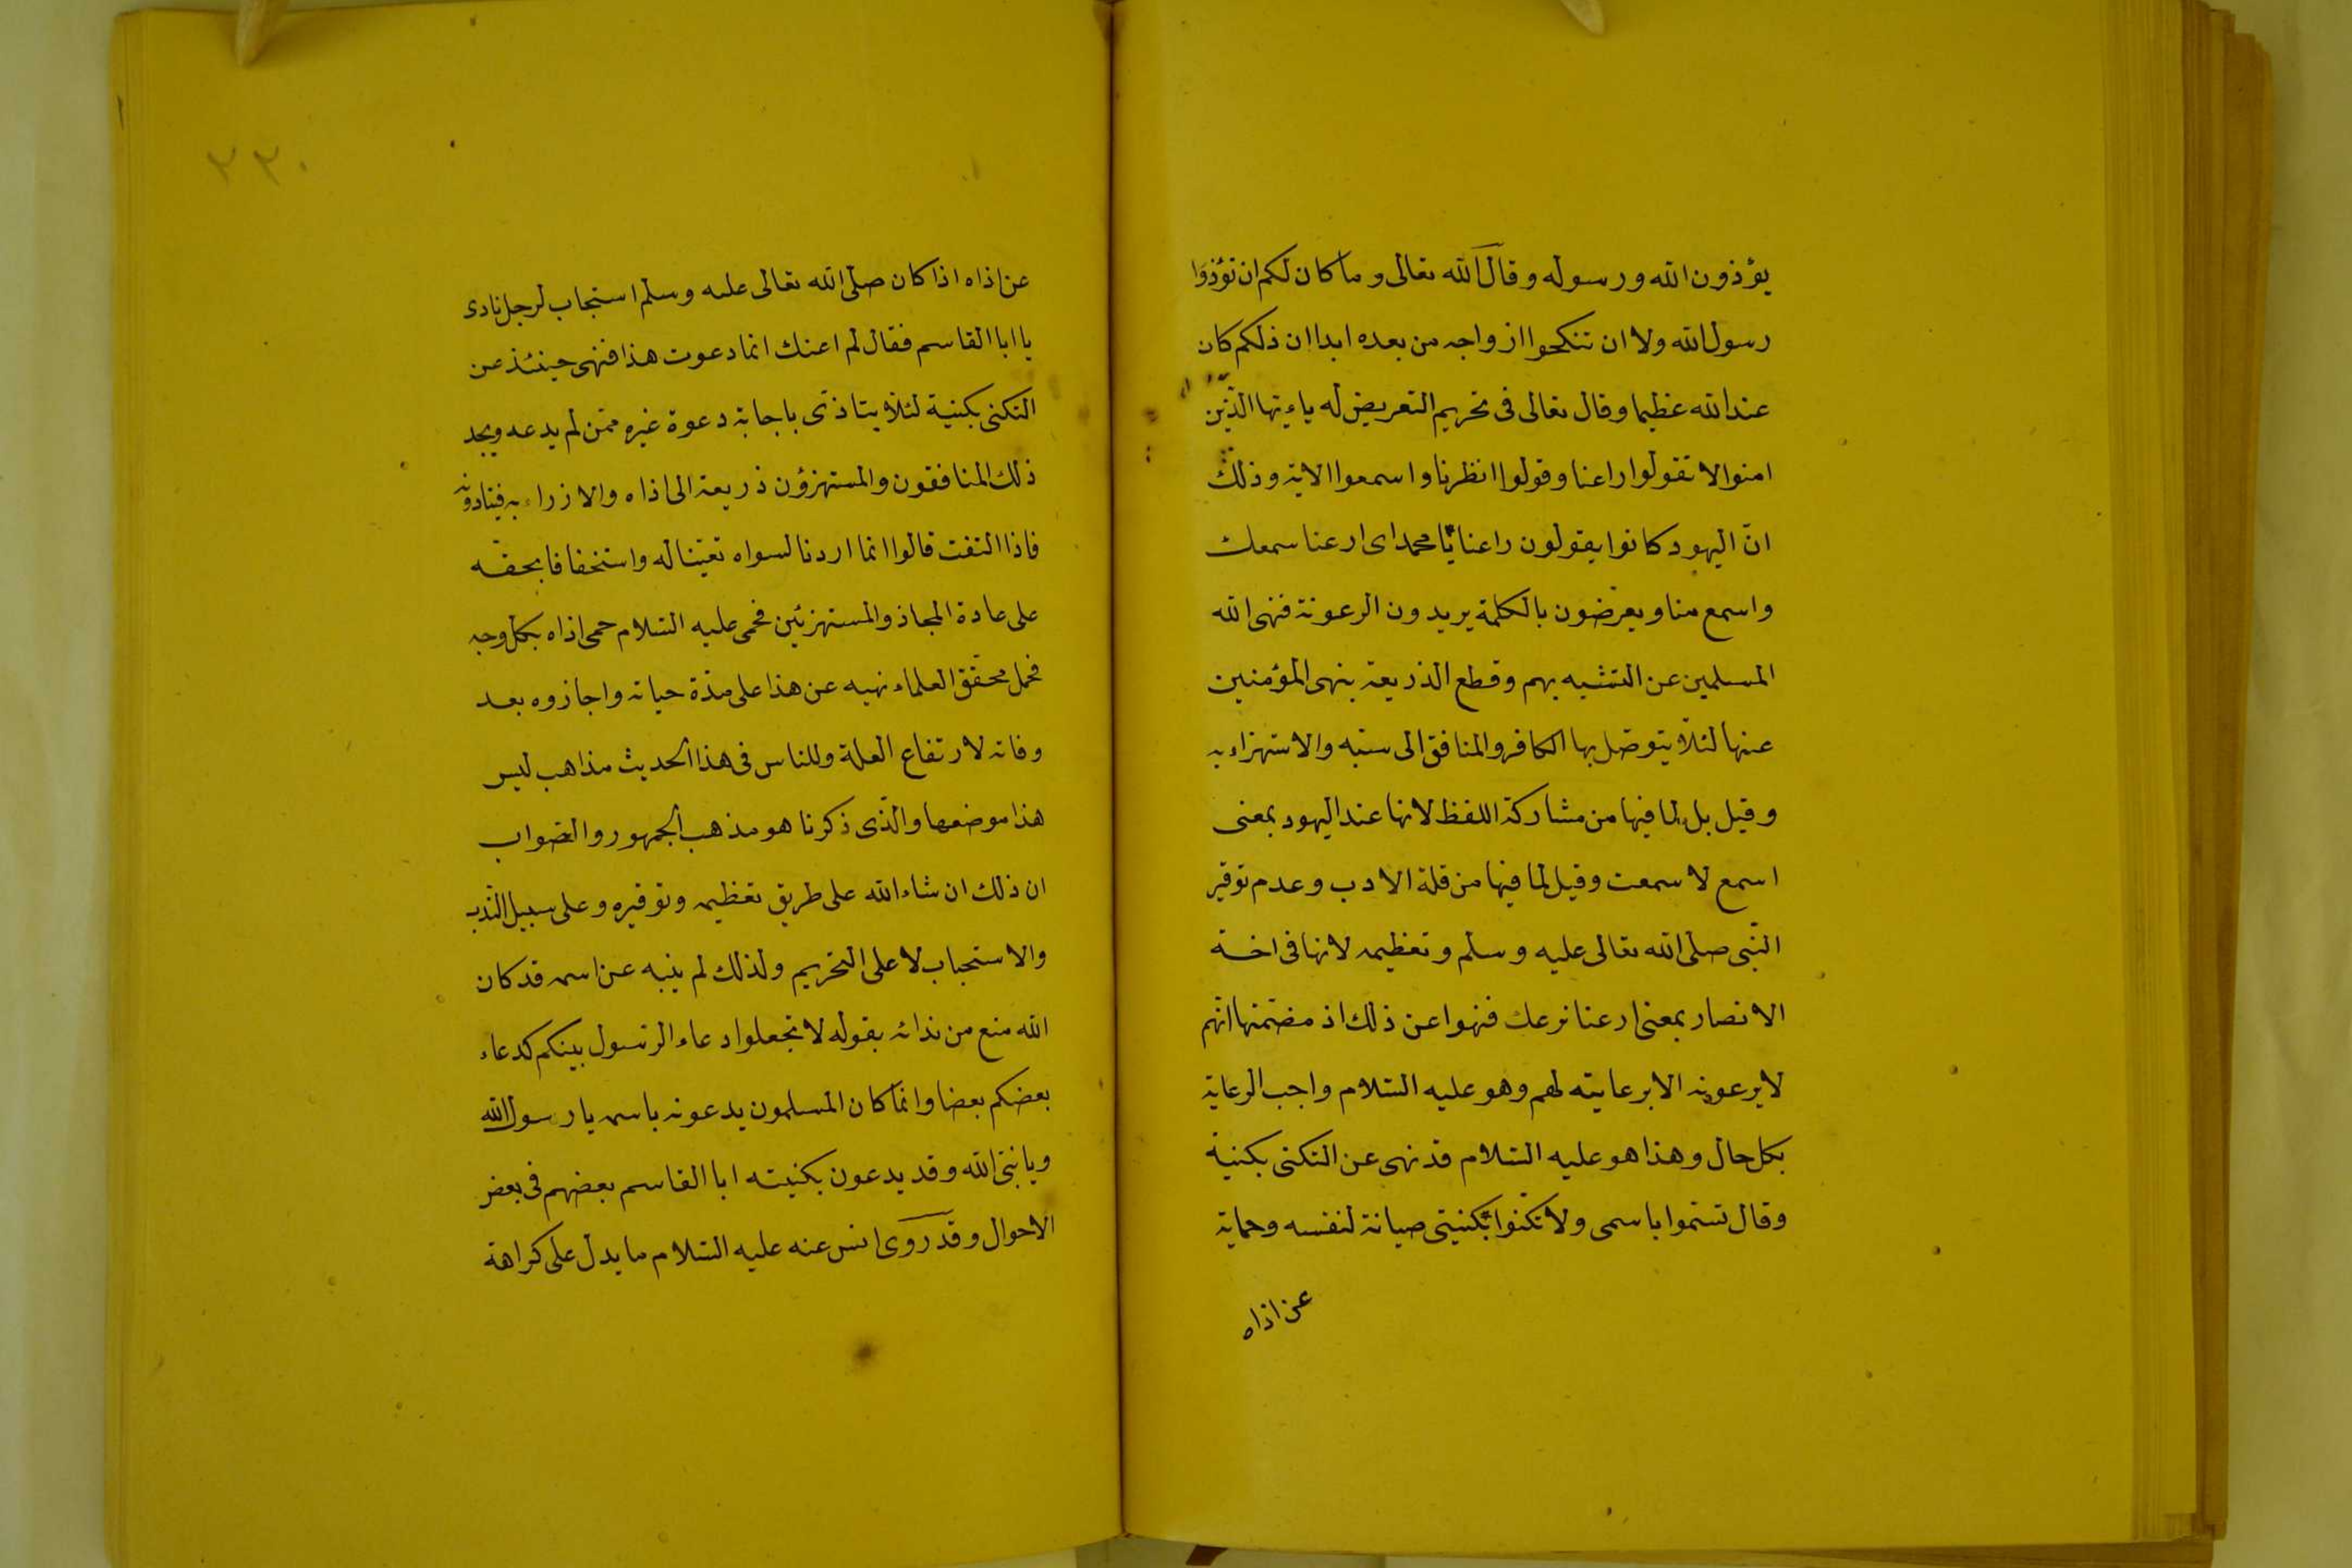 يؤذون الله ورسوله وقال الله تعالى وما كان لكم ان تؤذوا
رسول الله ولا ان تنكحوا ازواجه من بعده ابدا ان ذلكم كان
عند الله عظيما وقال تعالى فى تحريم التعريض له ياءيها الذين
امنوا لا تقولوا راعنا وقولوا انظرنا واسمعوا الاية وذلك
انّ اليهود كانوا يقولون راعنا يا محمد اى ارعنا سمعك
واسمع منا ويعرضون بالكلمة يريدون الرعونة فنهى الله
المسلمين عن التشبه بهم وقطع الذريعة بنهى المؤمنين
عنها لئلّا يتوصّل بها الكافر والمنافق الى سبّه والاستهزاء به
وقيل بل لما فيها من مشاركة اللفظ لانها عند اليهود بمعنى
اسمع لا سمعت وقيل لما فيها من قلة الادب وعدم توقير
النّبى صلى الله تعالى عليه وسلم وتعظيمه لانها فى لغة
الانصار بمعنى ارعنا نرعك فنهوا عن ذلك اذ مضمنها انهم
لا يرعونه الا برعايته لهم وهو عليه السّلام واجب الرعاية
بكل حال وهذا هو عليه السّلام قد نهى عن التكنى بكنية
وقال تسمّوا باسمى ولا تكنوا بكنيتى صيانة لنفسه وحماية
عن اذاه
٢٢٠
عن اذاه اذا كان صلّى الله تعالى عليه وسلم استجاب لرجل نادى
يا ابا القاسم فقال لم اعنك انما دعوت هذا فنهى حينئذ عن
التكنى بكنية لئلّا يتاذّى باجابة دعوة غيره ممّن لم يدعه ويجد
ذلك المنافقون والمستهزؤن ذريعة الى اذاه والازراء به فينادونه
فاذا التفت قالوا انما اردنا لسواه تعنيتا له واستخفافا بحقّه
على عادة المجاذ والمستهزئين فحمى عليه السّلام حمى اذاه بكلّ وجه
فحمل محقّق العلماء نهيه عن هذا على مدّة حياته واجازوه بعد
وفاته لارتفاع العلة وللناس فى هذا الحديث مذاهب ليس
هذا موضعها والّذى ذكرنا هو مذهب الجمهور والصّواب
ان ذلك ان شاء الله على طريق تعظيمه وتوقيره وعلى سبيل النّدب
والاستحباب لا على التحريم ولذلك لم ينه عن اسمه قد كان
الله منع من ندائه بقوله لا تجعلوا دعاء الرّسول بينكم كدعاء
بعضكم بعضا وانّما كان المسلمون يدعونه باسمه يا رسول الله
ويا نبىّ الله وقد يدعون بكنيته ابا القاسم بعضهم فى بعض
الاحوال وقد روى انس عنه عليه السّلام ما يدل على كراهة